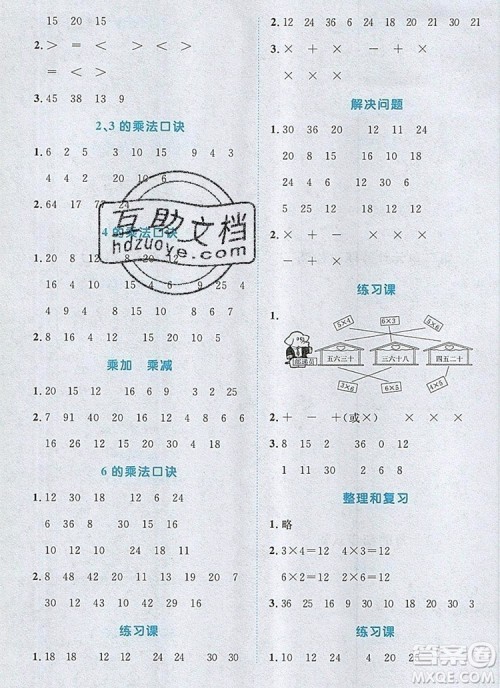 15 20 15
2. > = < > <
> = < >
3. 45 38 13 9
2、3的乘法口诀
1. 6 2 5 3 15 9 4 3
4 4 12 20 10 6
2. 64 17 75 24
4的乘法口诀
1. 20 8 12 8 20 12
15 16 4 18 16
2. 8 20 16 4 12 18
乘加 乘减
1. 12 18 7 9 16 4 24 8
2. 7 91 14 16 16 18
20 32 42 15 12 2
6的乘法口诀
1. 30 12 18 12 24
6 30 36 24
2. 13 20 12 24 30 30
60 43 51 4 8 6
3. 37 24 24 48 42 21
练习课
1. 18 18 6 36 30 24
2. 12 24 36 4 10 18 30
3. × + × - + ×
× × × ×
解决问题
1. 30 36 20 16 10
24 8 12 24 6
2. × + ×
× × ×
练习课
1. 5×4 6×3 5×6
邮递员 五六三十 三六十八 四五二十
3×6 6×5 4×5
2. + - + -(或×) ×
3. 8 15 12 36 12
1 28 11 6 2
整理和复习
1. 略
2. 3×4=12 4×3=12
6×2=12 2×6=12
3. 36 25 10 9 18 21 20 30 3
练习课
1. 10 12 12 6 25 24 18
答案圈
MXQE.COM
互助文档
hdzuoye.com